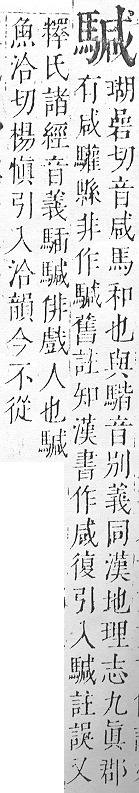 瑚嵒切音咸馬和也與音別義同漢地理志九眞郡
有咸驩縣非作舊註知漢書作咸復引入註誤又
釋氏諸經音義俳戲人也
魚冾切楊愼引入洽韻今不從